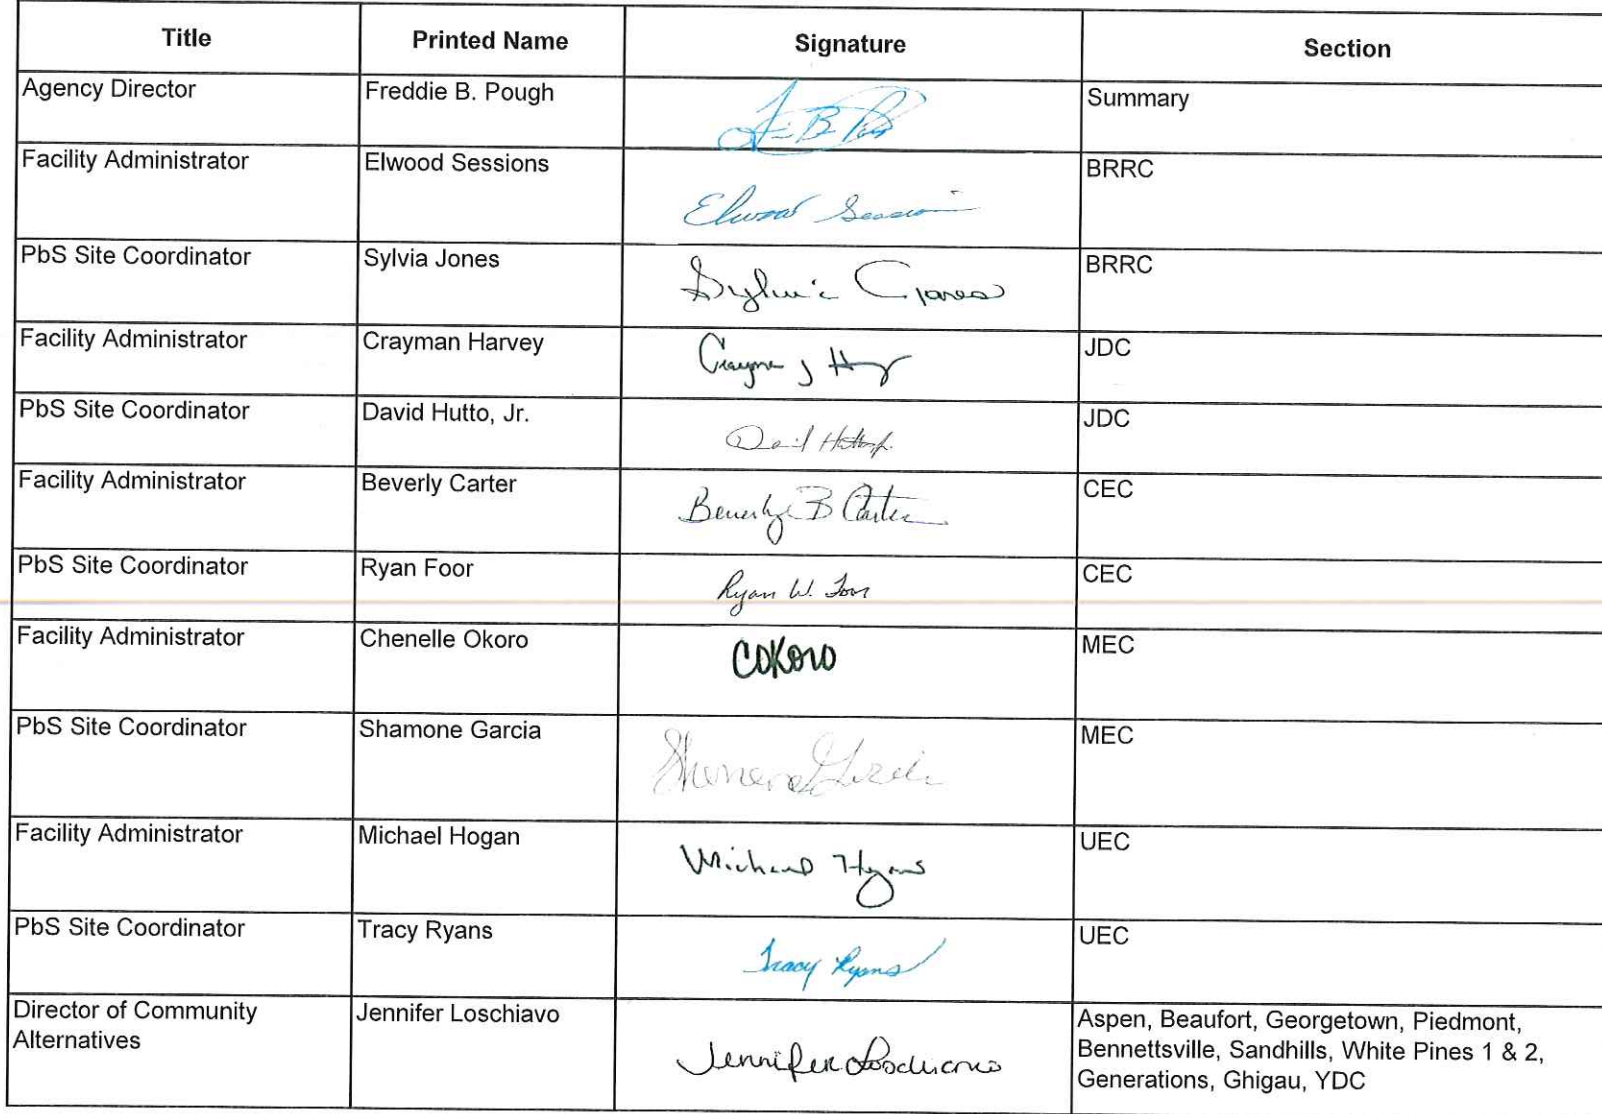 Title Printed Name Signature Section
Agency Director Freddie B. Pough Summary
Facility Administrator Elwood Sessions Elwood Session BRRC
PbS Site Coordinator Sylvia Jones Sylvia Jones BRRC
Facility Administrator Crayman Harvey JDC
PbS Site Coordinator David Hutto, Jr. David Hutto Jr. JDC
Facility Administrator Beverly Carter Beverly B Carter CEC
PbS Site Coordinator Ryan Foor Ryan W. Foor CEC
Facility Administrator Chenelle Okoro COKoro MEC
PbS Site Coordinator Shamone Garcia MEC
Facility Administrator Michael Hogan Michael Hogan UEC
PbS Site Coordinator Tracy Ryans Tracy Ryans UEC
Director of Community Alternatives Jennifer Loschiavo Jennifer Loschiavo Aspen, Beaufort, Georgetown, Piedmont,
Bennettsville, Sandhills, White Pines 1 & 2,
Generations, Ghigau, YDC